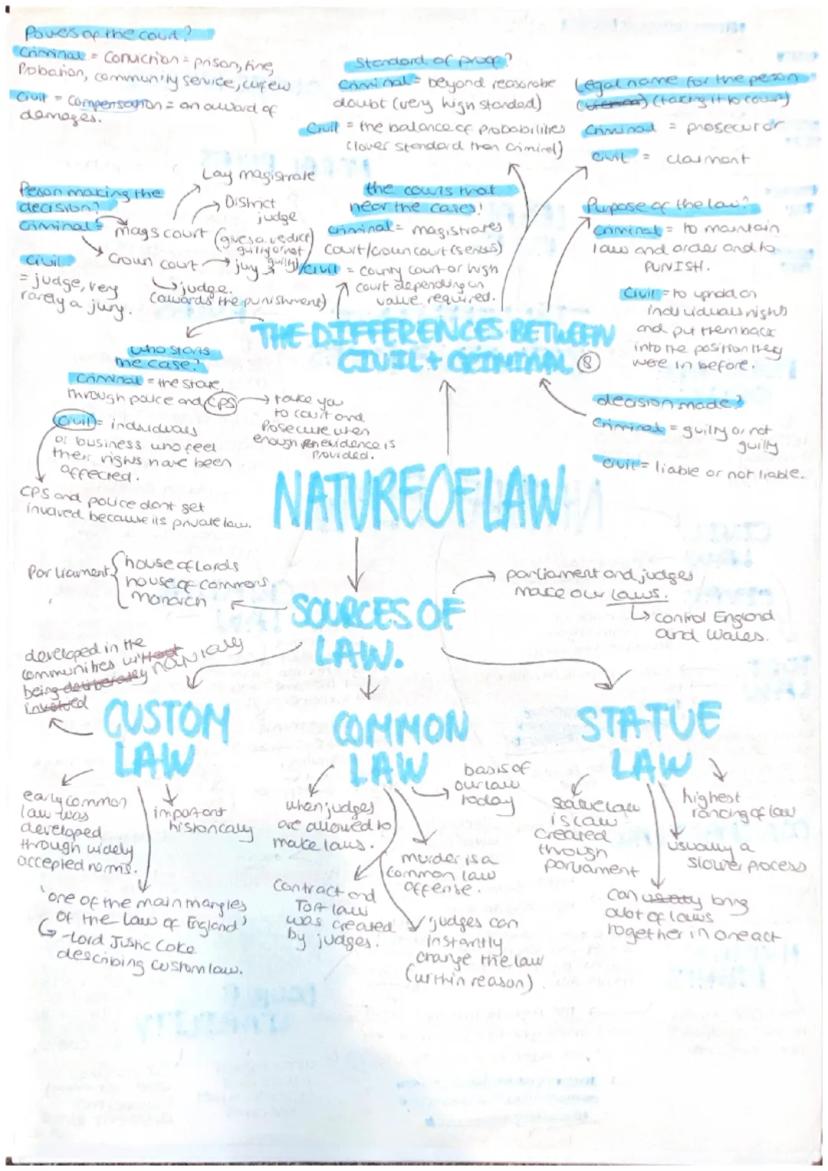 Powers of the court?
Criminal = Conviction = prison, fine,
Probation, community service, curfew
Civil = Compensation = an award of
damages.
Standard of proof?
Criminal = beyond reasonable
doubt (very high standard)
Civil = the balance of probabilities
(lower standard than criminal)
Legal name for the person
(taking it to court)
Criminal = prosecutor
Civil = claimant
Person making the
decision?
Criminal =
mags court
Lay magistrate
District
judge
Crown court
jury
(gives a verdict
guilty or not
guilty)
judge.
(awards the punishment)
Civil
= judge, very
rarely a jury.
the courts that
hear the cases!
Criminal = magistrates
court/crown court (serious)
Civil = county court or high
court depending on
value required.
Purpose of the law?
Criminal = to maintain
law and order and to
PUNISH.
Civil = to uphold an
individuals rights
and put them back
into the position they
were in before.
THE DIFFERENCES BETWEEN
CIVIL + CRIMINAL (8)
who starts
the case?
Criminal = the state,
through police and CPS
take you
to court and
Prosecute when
enough evidence is
provided.
Civil = individuals
or business who feel
their rights have been
affected.
CPS and police dont get
involved because its private law.
decision made?
Criminal = guilty or not
guilty
Civil = liable or not liable.
NATURE OF LAW
Parliament { house of lords
house of commons
monarch
SOURCES OF
LAW.
parliament and judges
make our laws.
control England
and Wales.
developed in the
communities without naturally
being deliberately
involved
CUSTOM
LAW
early common
law was
developed
through widely
accepted norms.
important
historically
'one of the main triangles
of the law of England'
- Lord Justic Coke
describing custom law.
COMMON
LAW
when judges
are allowed to
make laws.
basis of
our law
today
murder is a
common law
offense.
Contract and
Tort law
was created
by judges.
judges can
instantly
change the law
(within reason).
STATUE
LAW
statue law
is law
created
through
parliament
highest
ranking of law
usually a
slower process
can usually bring
a lot of laws
together in one act